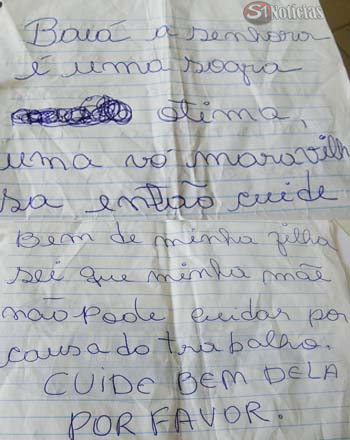 S1 Notícias
Baiá a senhora
é uma sogra
otima,
uma vó maravilh
sa então cuide
Bem de minha filha
sei que minha mãe
não pode cuidar por
causa do trabalho.
CUIDE BEM DELA
POR FAVOR.